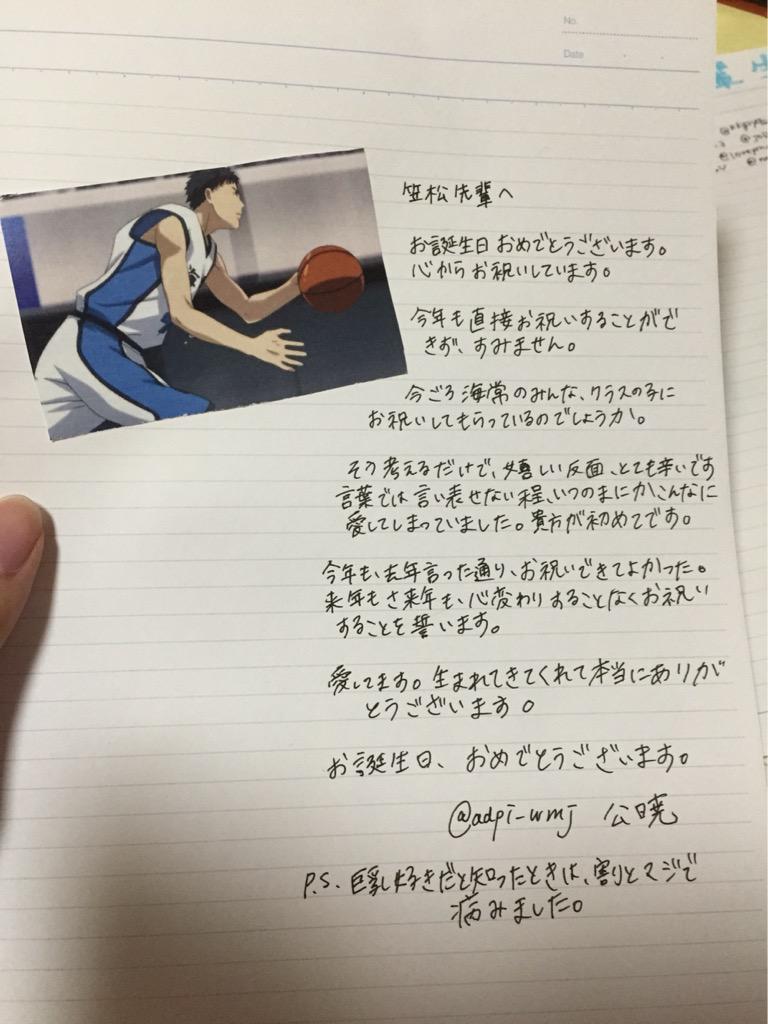 No.
Date
笠松先輩へ
お誕生日おめでとうございます。
心からお祝いしています。
今年も直接お祝いすることがで
きず、すみません。
今ごろ海常のみんな、クラスの子に
お祝いしてもらっているのでしょうか。
そう考えるだけで、嬉しい反面、とても辛いです
言葉では言い表せない程、いつのまにかこんなに
愛してしまっていました。貴方が初めてです。
今年も、去年言った通り、お祝いできてよかった。
来年もさ来年も、心変わりすることなくお祝い
することを誓います。
愛してます。生まれてきてくれて本当にありが
とうございます。
お誕生日、おめでとうございます。
@adpi-wmj 公暁
P.S. 巨乳好きだと知ったときは、割とマジで
病みました。